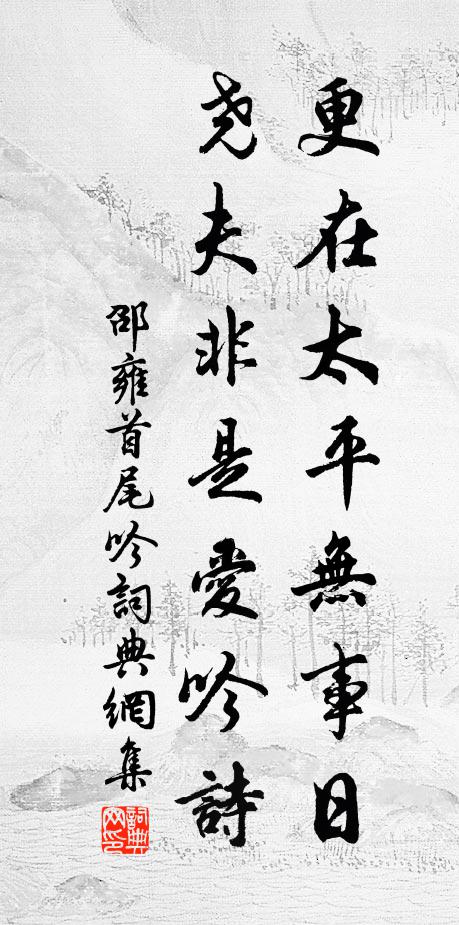 更在太平無事日
堯夫非是愛吟詩
邵雍首尾吟詞典網集
詞典網印